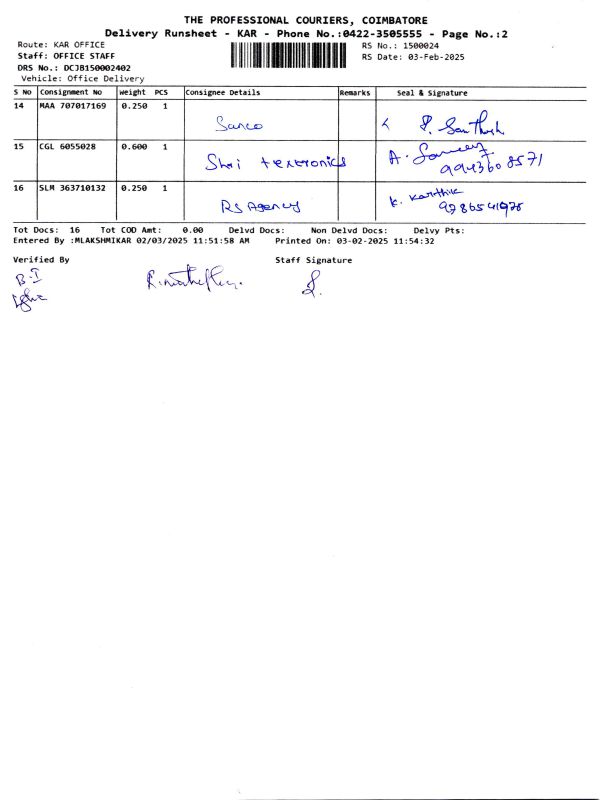 THE PROFESSIONAL COURIERS, COIMBATORE
Delivery Runsheet - KAR - Phone No.:0422-3505555 - Page No.:2
Route: KAR OFFICE RS No.: 1500024
Staff: OFFICE STAFF RS Date: 03-Feb-2025
DRS No.: DCJB150002402
Vehicle: Office Delivery
S No Consignment No Weight PCS Consignee Details Remarks Seal & Signature
14 MAA 707017169 0.250 1
Sanco P. Santhosh
15 CGL 6055028 0.600 1
Shri textronics A.
9943608571
16 SLM 363710132 0.250 1
RS Agency K. Karthik
9786541978
Tot Docs: 16 Tot COD Amt: 0.00 Delvd Docs: Non Delvd Docs: Delvy Pts:
Entered By :MLAKSHMIKAR 02/03/2025 11:51:58 AM Printed On: 03-02-2025 11:54:32
Verified By Staff Signature
B-I